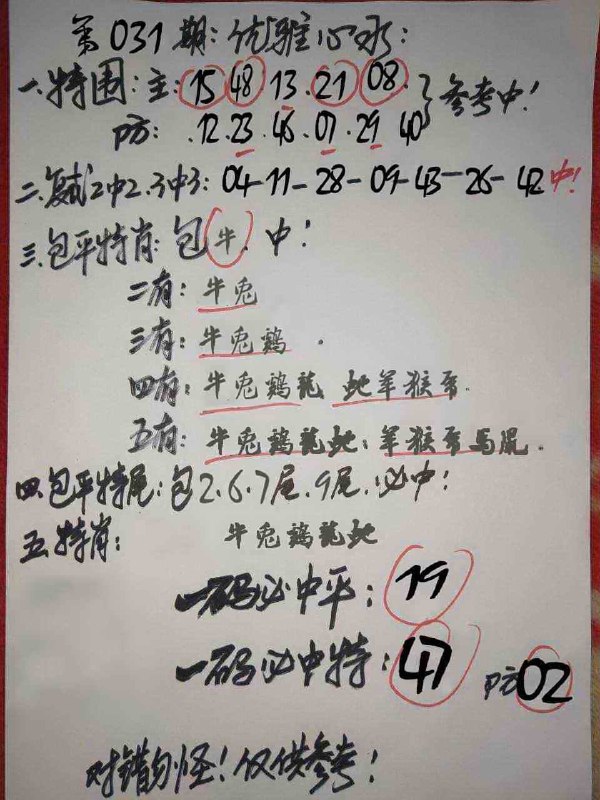 第031期:优雅心水:
一.特围:主:15 48 13.21 08.}参考中!
P方:.12.23.46.07.29 40
二.复试2中2.3中3:04-11-28-09-43-26-42中!
三.包平特肖:包牛.中!
二有:牛兔
三有:牛兔鷄.
四有:牛兔鷄龍 蛇羊猴马.
五有:牛兔鷄龍蛇:羊猴
四.包平特尾:包2.6.7尾.9尾.必中!
五.特肖: 牛兔鷄龍蛇
一码必中平:19
一码必中特:47 P方02
对错勿怪!仅供参考!